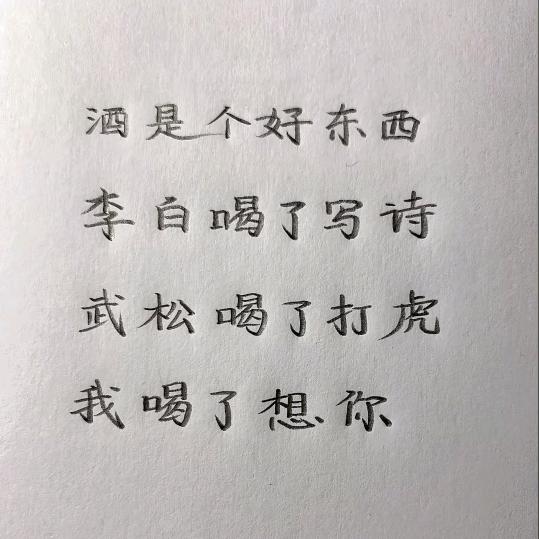 酒是个好东西
李白喝了写诗
武松喝了打虎
我喝了想你